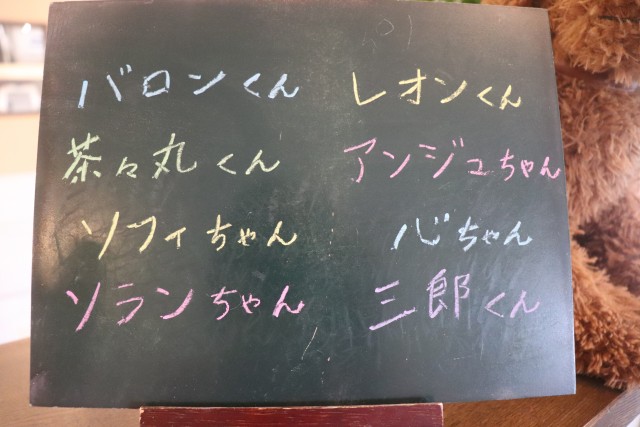 バロンくん レオンくん
茶々丸くん アンジュちゃん
ソフィちゃん 心ちゃん
ソランちゃん 三郎くん